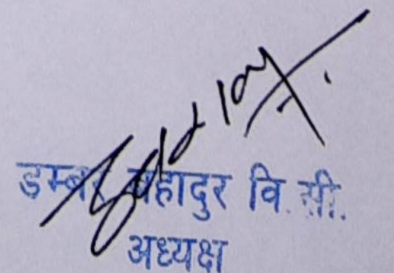 डम्बर बहादुर वि.सी.
अध्यक्ष